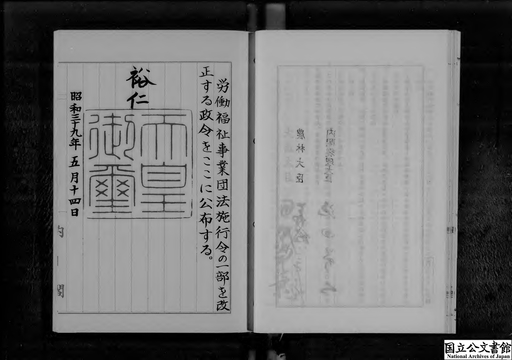 労働福祉事業団法施行令の一部を改
正する政令をここに公布する。
裕仁
天皇
御璽
昭和三十九年五月十四日
内閣
農林大臣
国立公文書館
National Archives of Japan